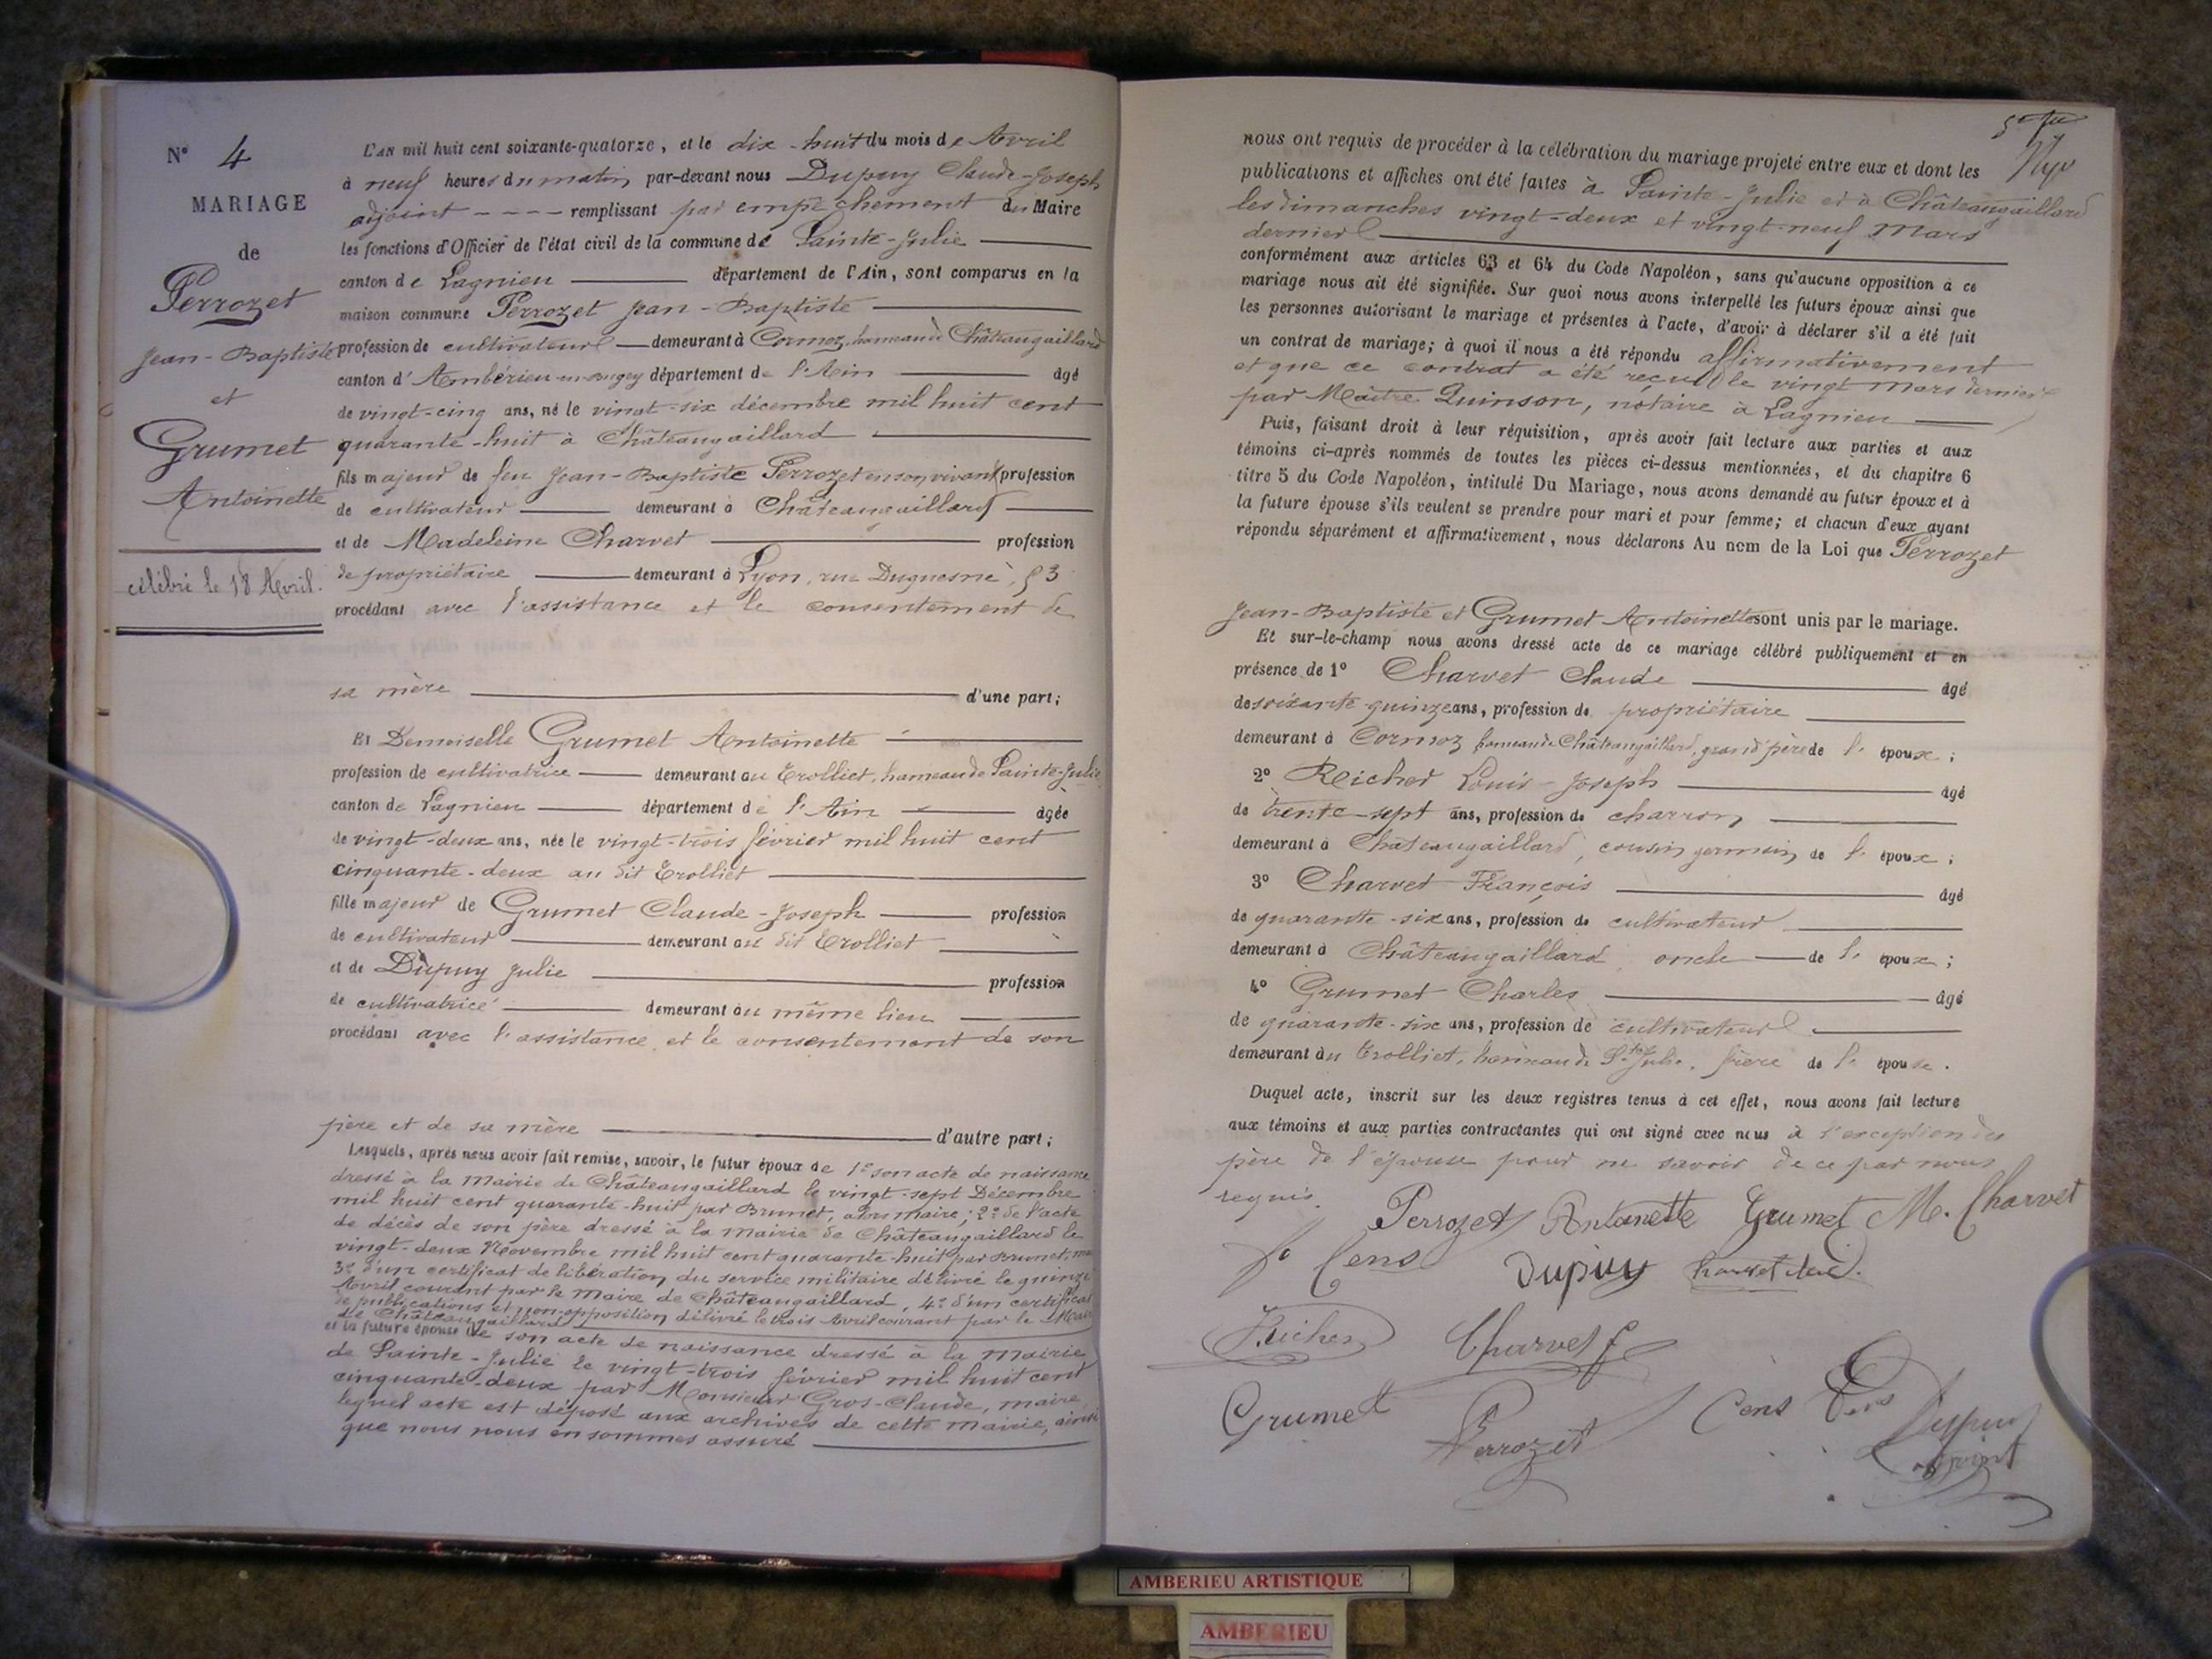 N° 4
MARIAGE
de
Perrozet
Jean-Baptiste
et
Grumet
Antoinette
célébré le 18 Avril.
L'AN mil huit cent soixante-quatorze, et le dix-huit du mois de Avril
à neuf heures du matin, par-devant nous Dupuy Claude-Joseph
adjoint - - - - remplissant par empêchement du Maire
les fonctions d'Officier de l'état civil de la commune de Sainte-Julie
canton de Lagnieu département de l'Ain, sont comparus en la
maison commune Perrozet Jean-Baptiste
profession de cultivateur demeurant à Cormoz, hameau de Châteaugaillard
canton d'Ambérieu-en-Bugey département de l'Ain âgé
de vingt-cinq ans, né le vingt-six décembre mil huit cent
quarante-huit à Châteaugaillard
fils majeur de feu Jean-Baptiste Perrozet en son vivant profession
de cultivateur demeurant à Châteaugaillard
et de Madeleine Charvet profession
de propriétaire demeurant à Lyon, rue Duguesne, 53
procédant avec l'assistance et le consentement de
sa mère d'une part;
Et Demoiselle Grumet Antoinette
profession de cultivatrice demeurant au Trolliet, hameau de Sainte-Julie
canton de Lagnieu département de l'Ain âgée
de vingt-deux ans, née le vingt-trois février mil huit cent
cinquante-deux au dit Trolliet
fille majeur de Grumet Claude-Joseph profession
de cultivateur demeurant au dit Trolliet
et de Dupuy Julie profession
de cultivatrice demeurant au même lieu
procédant avec l'assistance et le consentement de son
père et de sa mère d'autre part;
Lesquels, après nous avoir fait remise, savoir, le futur époux de 1° son acte de naissance
dressé à la mairie de Châteaugaillard le vingt-sept Décembre
mil huit cent quarante-huit par Brunet, alors maire; 2° de l'acte
de décès de son père dressé à la mairie de Châteaugaillard le
vingt-deux Novembre mil huit cent quarante-huit par Brunet, m
3° d'un certificat de libération du service militaire délivré le quinze
Avril courant par le Maire de Châteaugaillard, 4° d'un certificat
de publications et non-opposition délivré le trois Avril courant par le Maire
de Châteaugaillard
et la future épouse de son acte de naissance dressé à la mairie
de Sainte-Julie le vingt-trois février mil huit cent
cinquante-deux par Monsieur Gros-Claude, maire,
lequel acte est déposé aux archives de cette mairie, ainsi
que nous nous en sommes assuré
nous ont requis de procéder à la célébration du mariage projeté entre eux et dont les
publications et affiches ont été faites à Sainte-Julie et à Châteaugaillard
les dimanches vingt-deux et vingt-neuf Mars
dernier
conformément aux articles 63 et 64 du Code Napoléon, sans qu'aucune opposition à ce
mariage nous ait été signifiée. Sur quoi nous avons interpellé les futurs époux ainsi que
les personnes autorisant le mariage et présentes à l'acte, d'avoir à déclarer s'il a été fait
un contrat de mariage; à quoi il nous a été répondu affirmativement
et que ce contrat a été reçu le vingt mars dernier
par Maître Quinson, notaire à Lagnieu
Puis, faisant droit à leur réquisition, après avoir fait lecture aux parties et aux
témoins ci-après nommés de toutes les pièces ci-dessus mentionnées, et du chapitre 6
titre 5 du Code Napoléon, intitulé Du Mariage, nous avons demandé au futur époux et à
la future épouse s'ils veulent se prendre pour mari et pour femme; et chacun d'eux ayant
répondu séparément et affirmativement, nous déclarons Au nom de la Loi que Perrozet
Jean-Baptiste et Grumet Antoinette sont unis par le mariage.
Et sur-le-champ nous avons dressé acte de ce mariage célébré publiquement et en
présence de 1° Charvet Claude âgé
de soixante-quinze ans, profession de propriétaire
demeurant à Cormoz hameau de Châteaugaillard, grand'père de l'époux;
2° Richer Louis-Joseph âgé
de trente-sept ans, profession de charron
demeurant à Châteaugaillard, cousin germain de l'époux;
3° Charvet François âgé
de quarante-six ans, profession de cultivateur
demeurant à Châteaugaillard oncle de l'époux;
4° Grumet Charles âgé
de quarante-six ans, profession de cultivateur
demeurant au Trolliet, hameau de Ste Julie, frère de l'épouse.
Duquel acte, inscrit sur les deux registres tenus à cet effet, nous avons fait lecture
aux témoins et aux parties contractantes qui ont signé avec nous à l'exception du
père de l'épouse pour ne savoir de ce par nous
requis.
Perrozet Antoinette Grumet M. Charvet
Cens Dupuy
Richer Charvet f
Grumet Perrozet Cens Dupuy
adjoint
AMBERIEU ARTISTIQUE
AMBERIEU